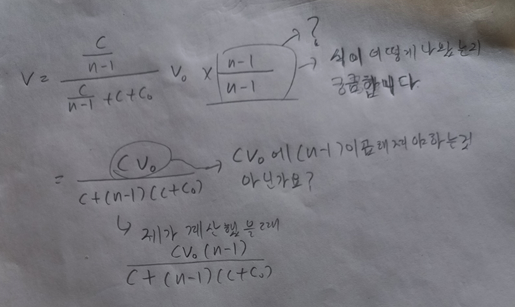 V = \frac{\frac{C}{n-1}}{\frac{C}{n-1}+C+C_0} V_0 × \frac{n-1}{n-1} → ?
→ 식이 어떻게 나왔는지
궁금합니다
= \frac{CV_0}{C+(n-1)(C+C_0)} → CV_0에 (n-1)이 곱해져야하는것
아닌가요?
↳ 제가 계산했을때
\frac{CV_0(n-1)}{C+(n-1)(C+C_0)}